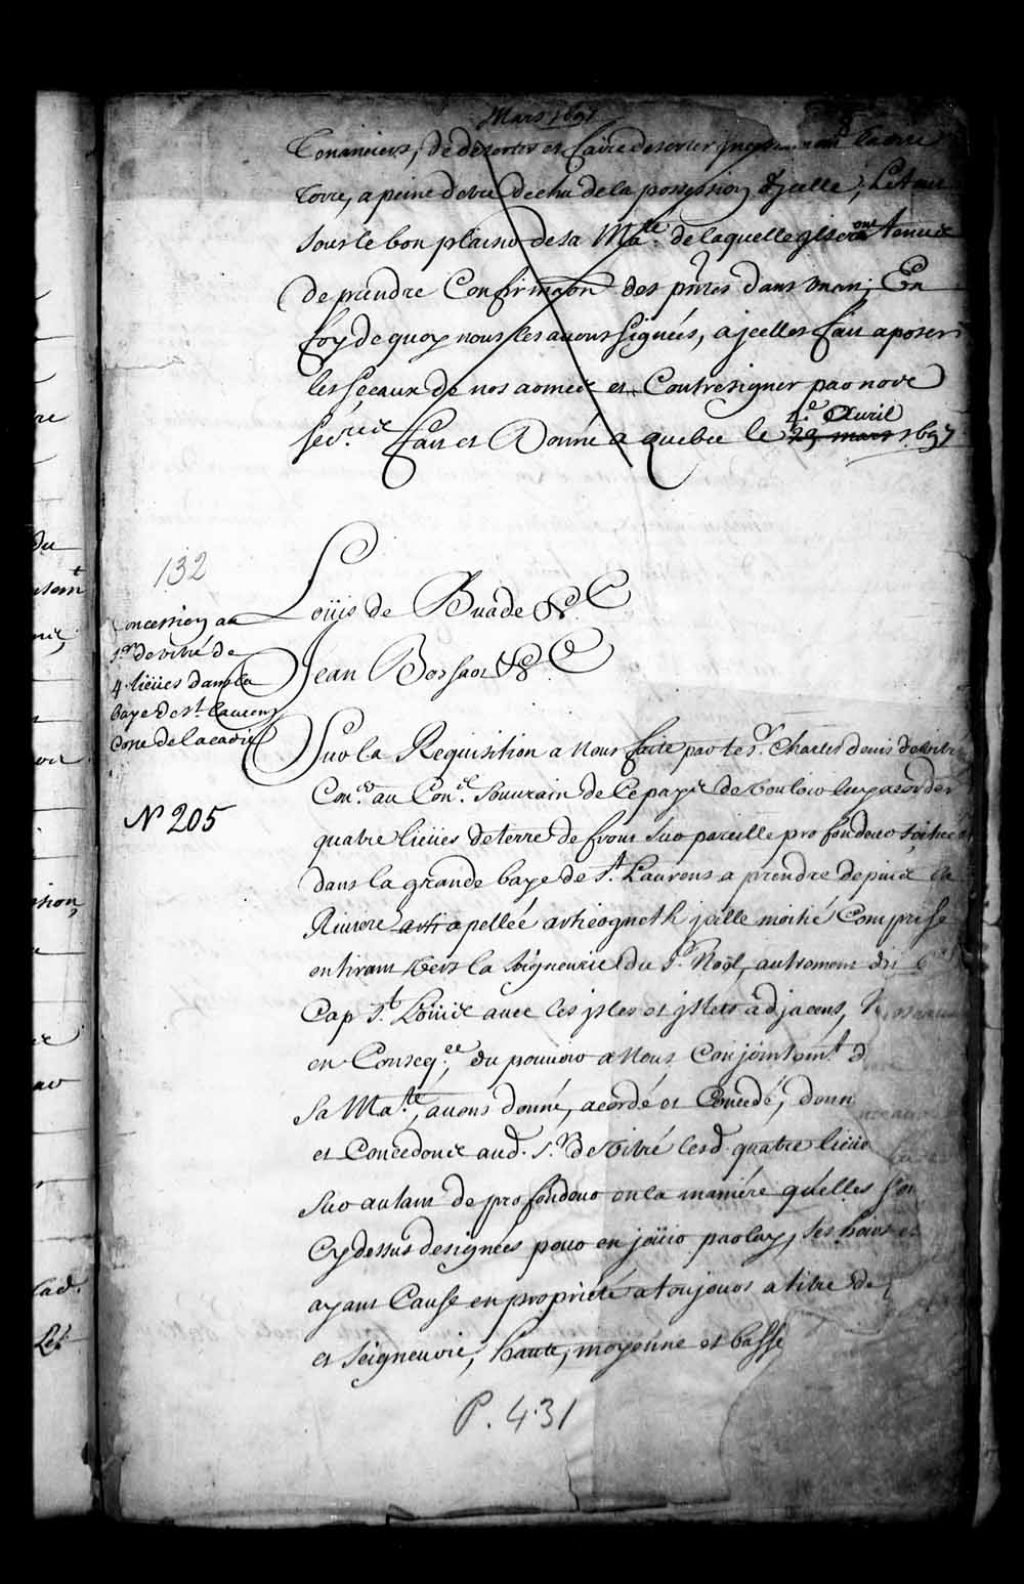 Mars 1697
Tenanciers, de deserter et faire deserter lad.
terre, a peine d'etre dechu de la possession d'jcelle; Le tout
sous le bon plaisir de sa Ma.té de laquelle jl sera tenue
de prendre Confirma̅on des pn̅tes dans un an; En
foy de quoy nous les auons signées, a jcelles fait aposer
les sceaux de nos armes et Contresigner par nos
secr.res Fait et Donné a quebec le 29 mars 1.e Auril 1697
132
Concession au
s.r de vitré de
4. liëües dans la
baye de s.t Laurens
Coste de lacadie
N 205
Loüis de Buade &.c
Jean Bochart &.c
Sur la Requisition a Nous faite par le s.r Charles denis de vitré
Con.er au Con.el souuerain de ce paÿs de vouloir luy acorder
quatre liëües de terre de front sur pareille profondeur scitüe
dans la grande baye de s.t Laurens a prendre depuis la
Riuiere arti apellée artieogneth jcelle moitié Comprise
en tirant vers la seigneurie du s.r Noël, autrement dit
Cap s.t Loüis auec les jsles et jslets adjacens,
en Conseq.ce du pouuoir a Nous Conjointem.t
sa Ma.té, auons donné, acordé et Concedé, donn
et Concedons aud. s.r de Vitré lesd. quatre liëües
sur autant de profondeur en la maniére qu'elles sont
Cy dessus designées pour en joüir par luy, ses hoirs et
ayans Cause en propriété a toujours a titre de
et seigneurie, haute, moyenne et basse
P. 431